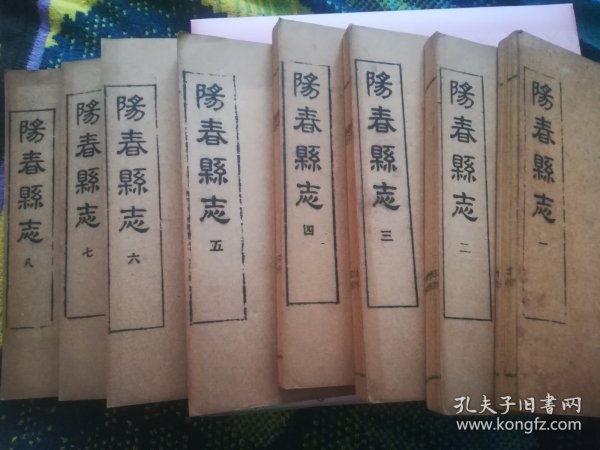 陽春縣志 一
陽春縣志 二
陽春縣志 三
陽春縣志 四
陽春縣志 五
陽春縣志 六
陽春縣志 七
陽春縣志 八
孔夫子旧书网
www.kongfz.com